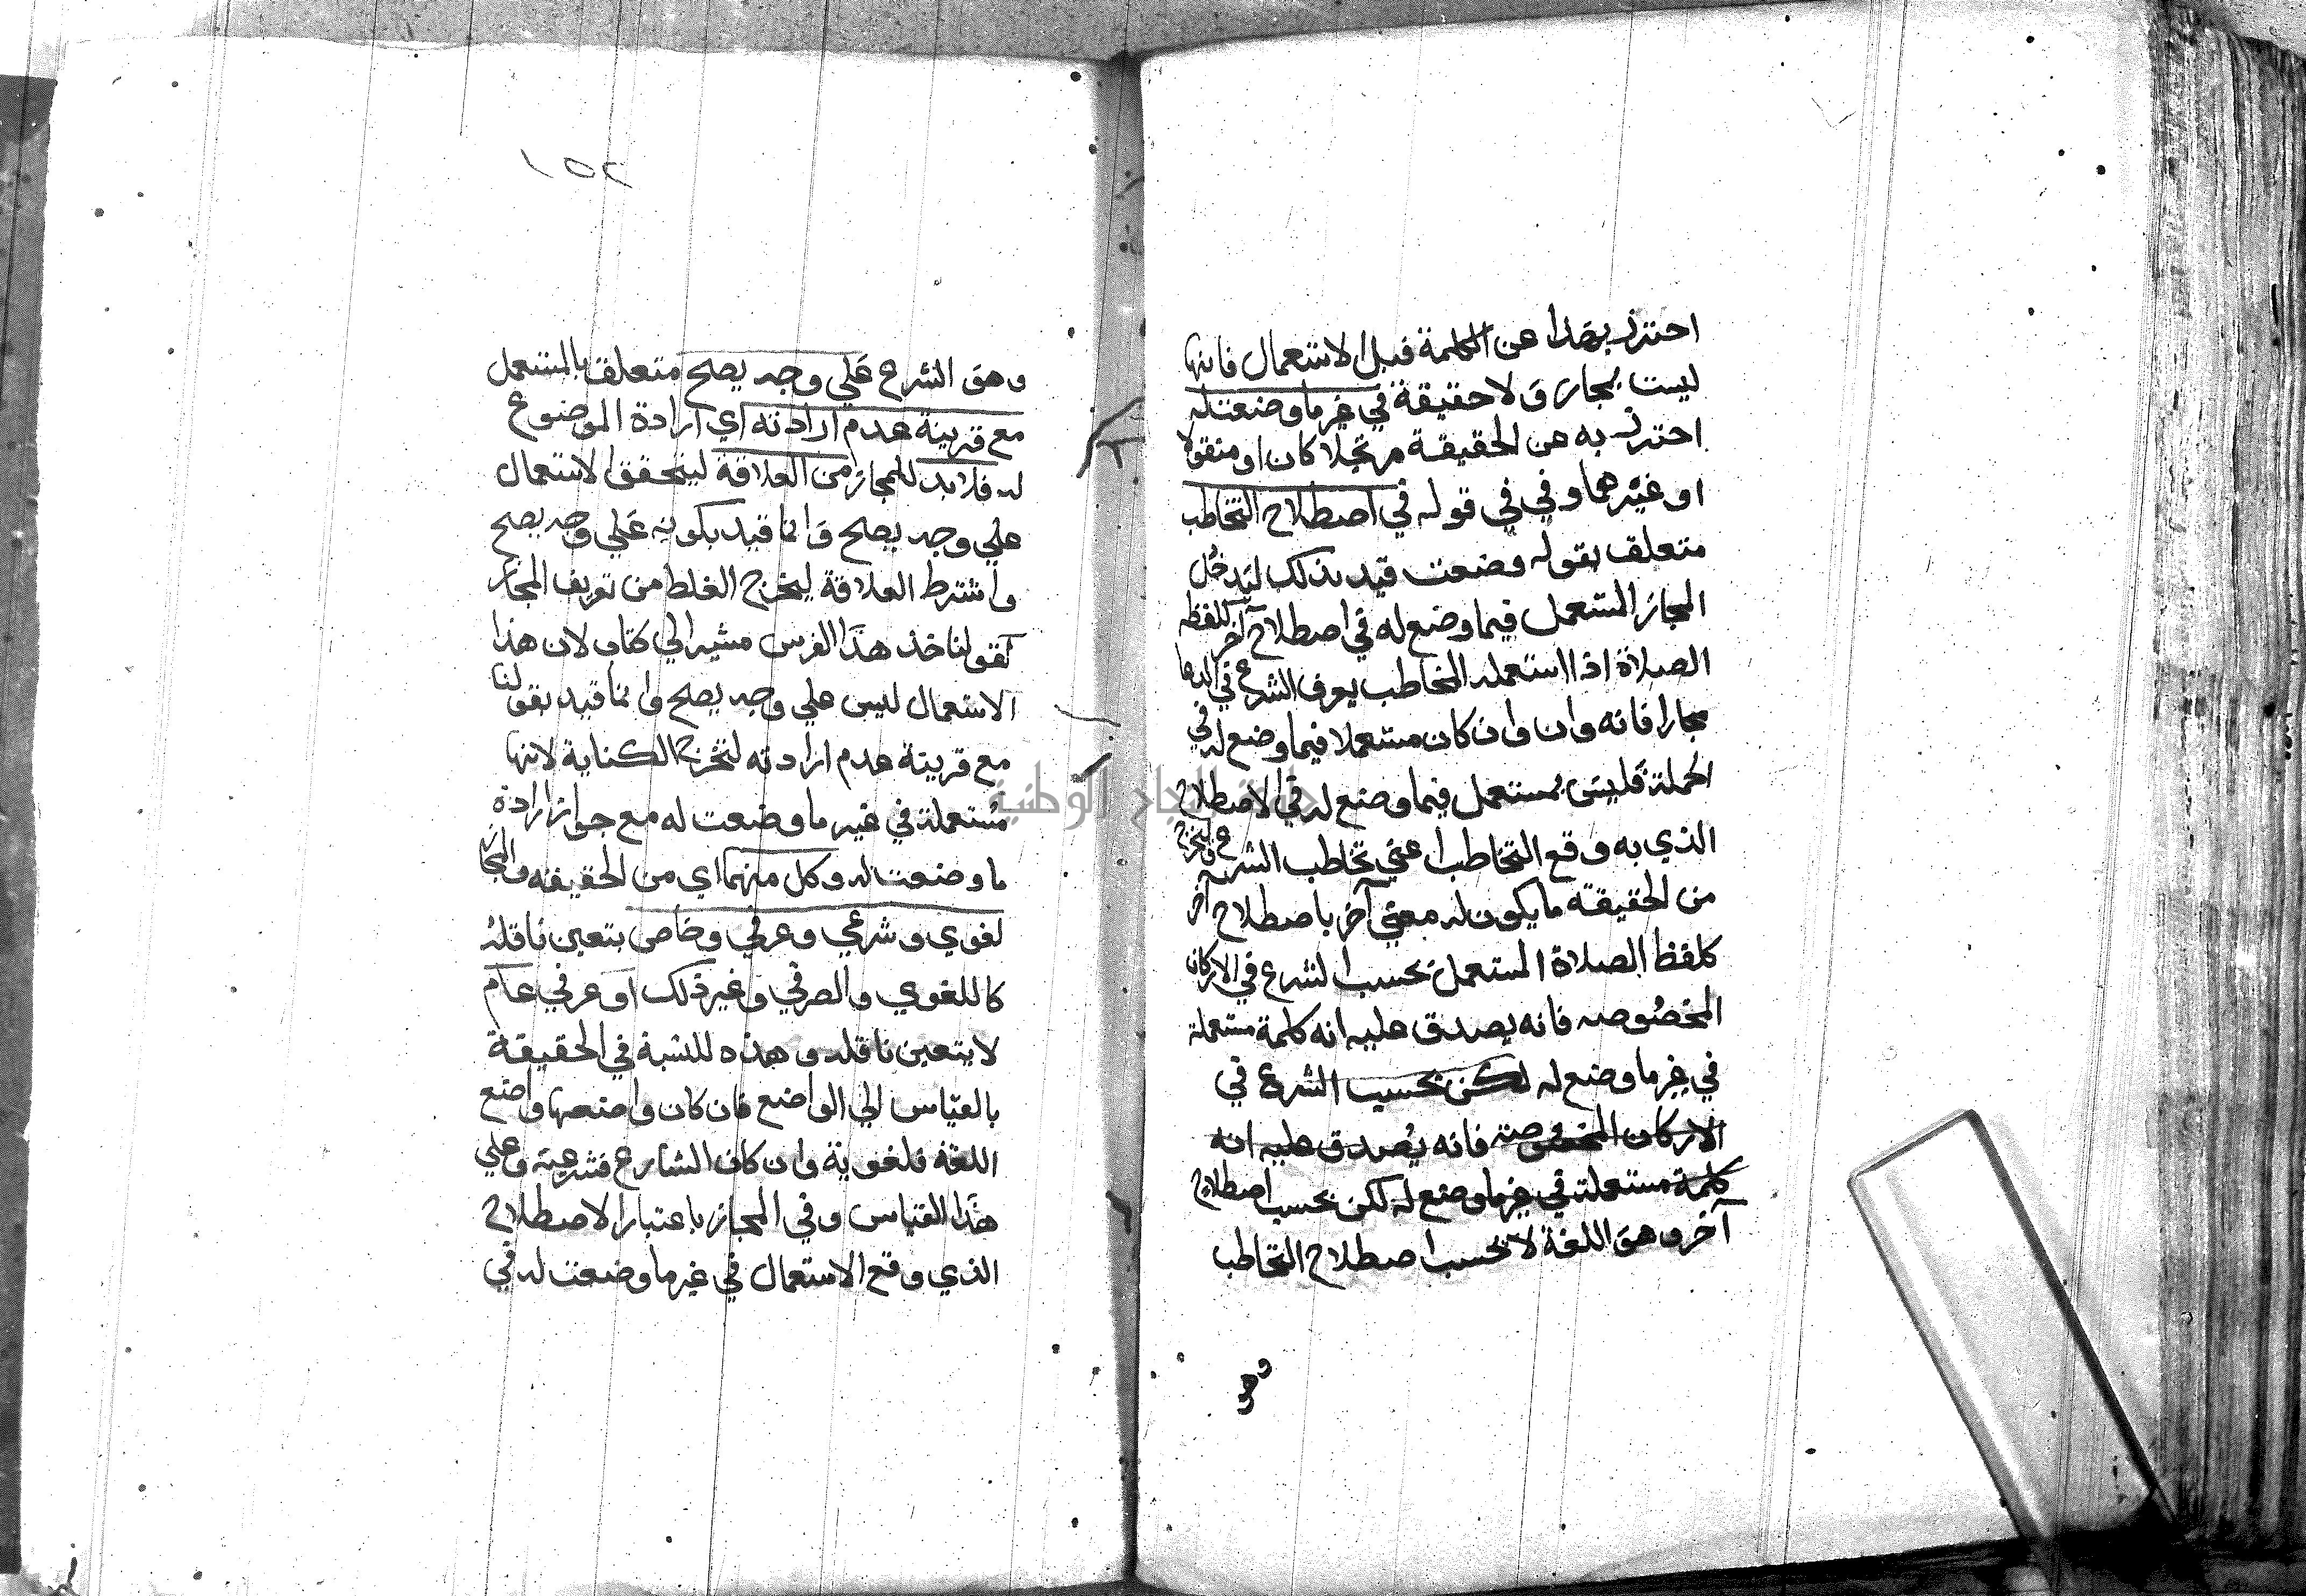 احترز بهذا عن الكلمة قبل الاستعمال فانها
ليست بمجاز ولا حقيقة في غير ما وضعت له
احترز به عن الحقيقة مرتجلا كان او منقولا
او غيرهما وفي في قوله في اصطلاح التخاطب
متعلق بقوله وضعت قيد بذلك ليدخل
المجاز المستعمل فيما وضع له في اصطلاح آخر كلفظ
الصلاة اذا استعمله المخاطب بعرف الشرع في الدعا
مجازا فانه وان وان كان مستعملا فيما وضع له في
الجملة فليس بمستعمل فيما وضع له في الاصطلاح
الذي به وقع التخاطب اعني تخاطب الشرع وليخرج
من الحقيقة ما يكون له معني آخر باصطلاح آخر
كلفظ الصلاة المستعمل بحسب الشرع في الاركان
المخصوصه فانه يصدق عليه انه كلمة مستعملة
في غير ما وضع له لكن بحسب الشرع في
الاركان المخصوصة فانه يصدق عليه انه
كلمة مستعملة في غير ما وضع له لكن بحسب اصطلاح
آخر وهو اللغة لا بحسب اصطلاح التخاطب
وهو
١٥٢
وهو الشرع علي وجه يصلح متعلق بالمستعمل
مع قرينة عدم ارادته اي ارادة الموضوع
له فلا بد للمجاز من العلاقة ليتحقق الاستعمال
علي وجه يصلح وانما قيد بكونه علي وجه يصلح
واشترط العلاقة ليخرج الغلط من تعريف المجاز
كقولنا خذ هذا الفرس مشيرا الي كتاب لان هذا
الاستعمال ليس علي وجه يصلح وانما قيد بقولنا
مع قرينة عدم ارادته لتخرج الكناية لانها
مستعملة في غير ما وضعت له مع جواز ارادة
ما وضعت له وكل منهما اي من الحقيقه والمجاز
لغوي وشرعي وعرفي وخاص يتعين ناقله
كاللغوي والصرفي وغير ذلك او عرفي عام
لا يتعين ناقله وهذه للنسبة في الحقيقة
بالقياس الي الواضع فان كان واضعها واضع
اللغة فلغوية وان كان الشارع فشرعية وعلي
هذا القياس وفي المجاز باعتبار الاصطلاح
الذي وقع الاستعمال في غير ما وضعت له في